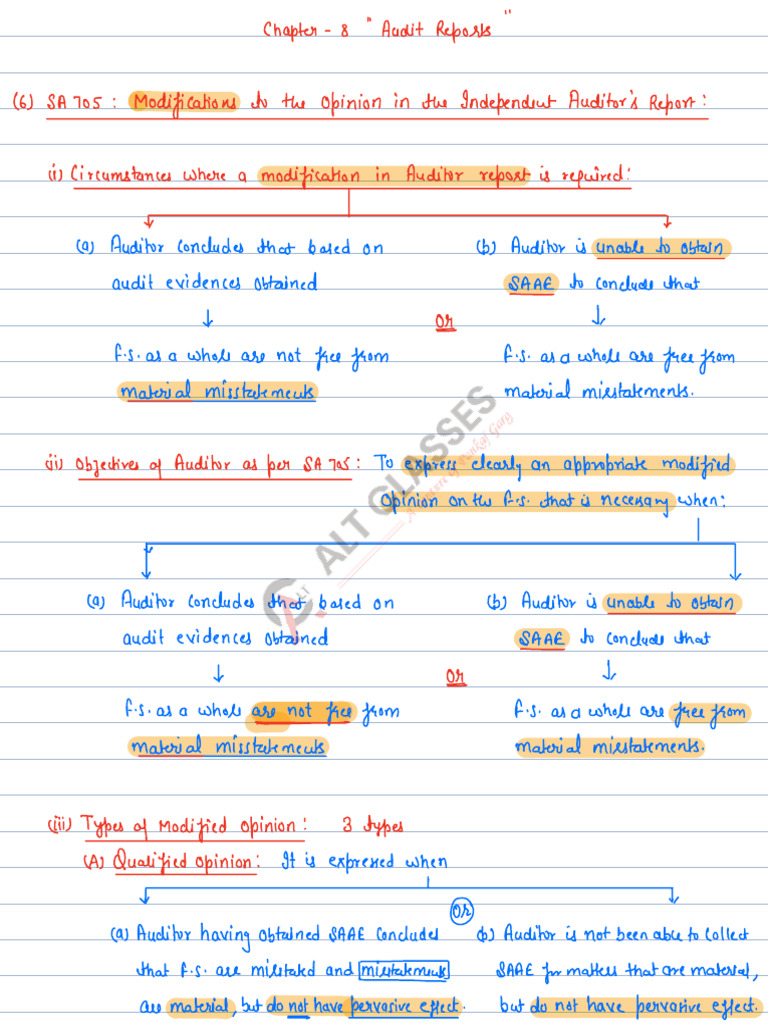 Chapter - 8 "Audit Reports"
(6) SA 705 : Modifications to the Opinion in the Independent Auditor's Report :
(i) Circumstances where a modification in Auditor report is required :
(a) Auditor concludes that based on
audit evidences obtained
↓
f.s. as a whole are not free from
material misstatements
Or
(b) Auditor is unable to obtain
SAAE to conclude that
↓
f.s. as a whole are free from
material misstatements.
(ii) Objectives of Auditor as per SA 705 : To express clearly an appropriate modified
Opinion on the f.s. that is necessary when :
(a) Auditor concludes that based on
audit evidences obtained
↓
f.s. as a whole are not free from
material misstatements
Or
(b) Auditor is unable to obtain
SAAE to conclude that
↓
f.s. as a whole are free from
material misstatements.
(iii) Types of Modified Opinion : 3 types
(A) Qualified Opinion : It is expressed when
(a) Auditor having obtained SAAE concludes
that f.s. are misstated and misstatements
are material, but do not have pervasive effect.
Or
(b) Auditor is not been able to collect
SAAE for matters that are material,
but do not have pervasive effect.
ALT CLASSES
A Venture of Pankaj Garg
ALT